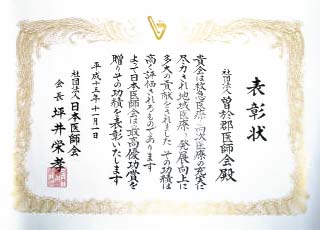 表彰状
社団法人 曽於郡医師会殿
貴会は救急医療・へき地医療の充実に
尽力され地域医療の発展向上に
多大の貢献をされました その功績は
高く評価されるものであります
よって日本医師会は最高優功賞を
贈りその功績を表彰いたします
平成十五年十一月一日
社団法人 日本医師会
会長 坪井栄孝